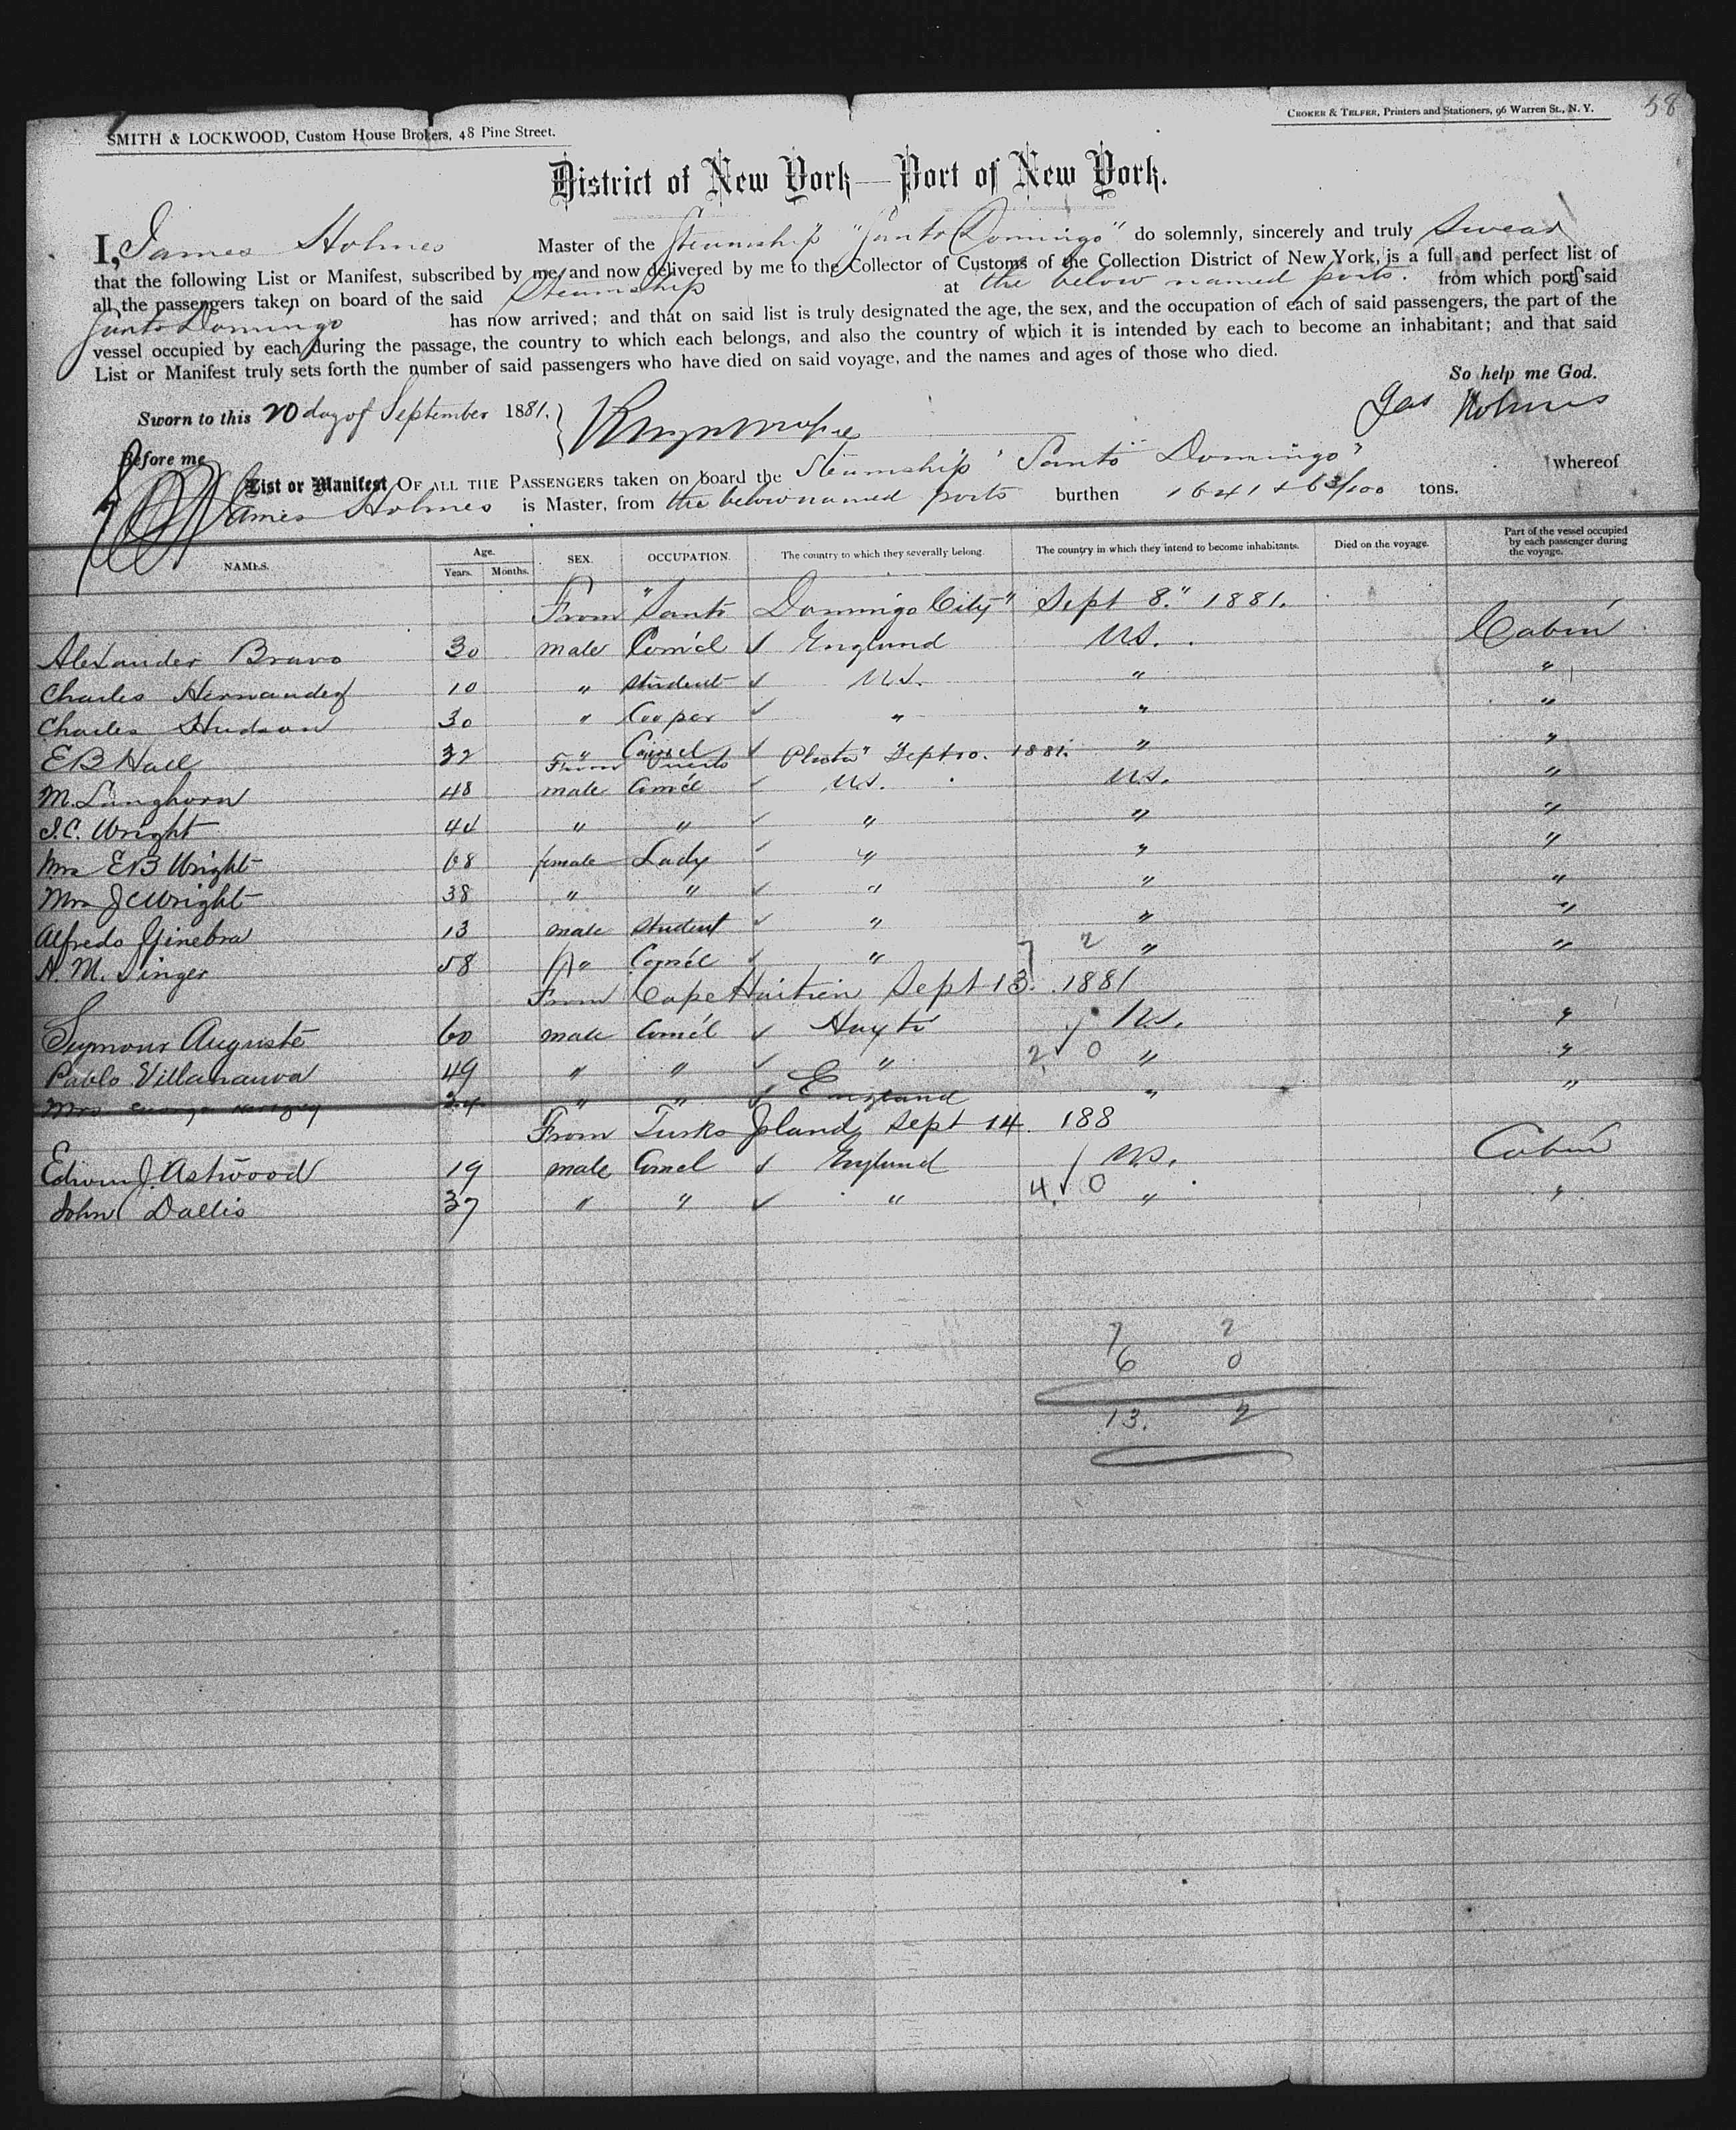 58
SMITH & LOCKWOOD, Custom House Brokers, 48 Pine Street.
CROKER & TELFER, Printers and Stationers, 96 Warren St., N. Y.
District of New York—Port of New York.
I, James Holmes Master of the Steamship "Santo Domingo" do solemnly, sincerely and truly Swear
that the following List or Manifest, subscribed by me, and now delivered by me to the Collector of Customs of the Collection District of New York, is a full and perfect list of
all the passengers taken on board of the said Steamship at the below named ports. from which ports said
Santo Domingo has now arrived; and that on said list is truly designated the age, the sex, and the occupation of each of said passengers, the part of the
vessel occupied by each during the passage, the country to which each belongs, and also the country of which it is intended by each to become an inhabitant; and that said
List or Manifest truly sets forth the number of said passengers who have died on said voyage, and the names and ages of those who died.
So help me God.
Sworn to this 20 day of September 1881.
Jas Holmes
Before me
List or Manifest OF ALL THE PASSENGERS taken on board the Steamship "Santo Domingo" whereof
James Holmes is Master, from the below named ports burthen 1641 + 63/100 tons.
NAMES. Age. Years. Months. SEX. OCCUPATION. The country to which they severally belong. The country in which they intend to become inhabitants. Died on the voyage. Part of the vessel occupied by each passenger during the voyage.
From "Santo Domingo City" Sept 8." 1881.
Alexander Bravo 30 male Com'cl ✓ England U.S. Cabin
Charles Hernandez 10 " student ✓ U.S. " "
Charles Hudson 30 " Cooper ✓ " " "
E B Hall 32 " ✓ " " "
From "Puerto Plata" Sept 10. 1881.
M. Langhorn 48 male Com'cl ✓ U.S. U.S. "
J. C. Wright 44 " " ✓ " " "
Mrs E B Wright 68 female Lady ✓ " " "
Mrs J C Wright 38 " " ✓ " " "
Alfredo Ginebra 13 male student ✓ " " "
A. M. Singer 58 " Com'cl ✓ " 7 2 " "
From Cape Haitien Sept 13. 1881
Seymour Auguste 60 male Com'cl ✓ Hayti U.S. "
Pablo Villanauva 49 " " ✓ " 2 ✓ 0 " "
Mrs 24 " " ✓ England " "
From Turks Island Sept 14. 188
Edwin J. Astwood 19 male Comcl ✓ England U.S. Cabin
John Dallis 37 " " ✓ " 4 ✓ 0 " "
7 2
6 0
13. 2